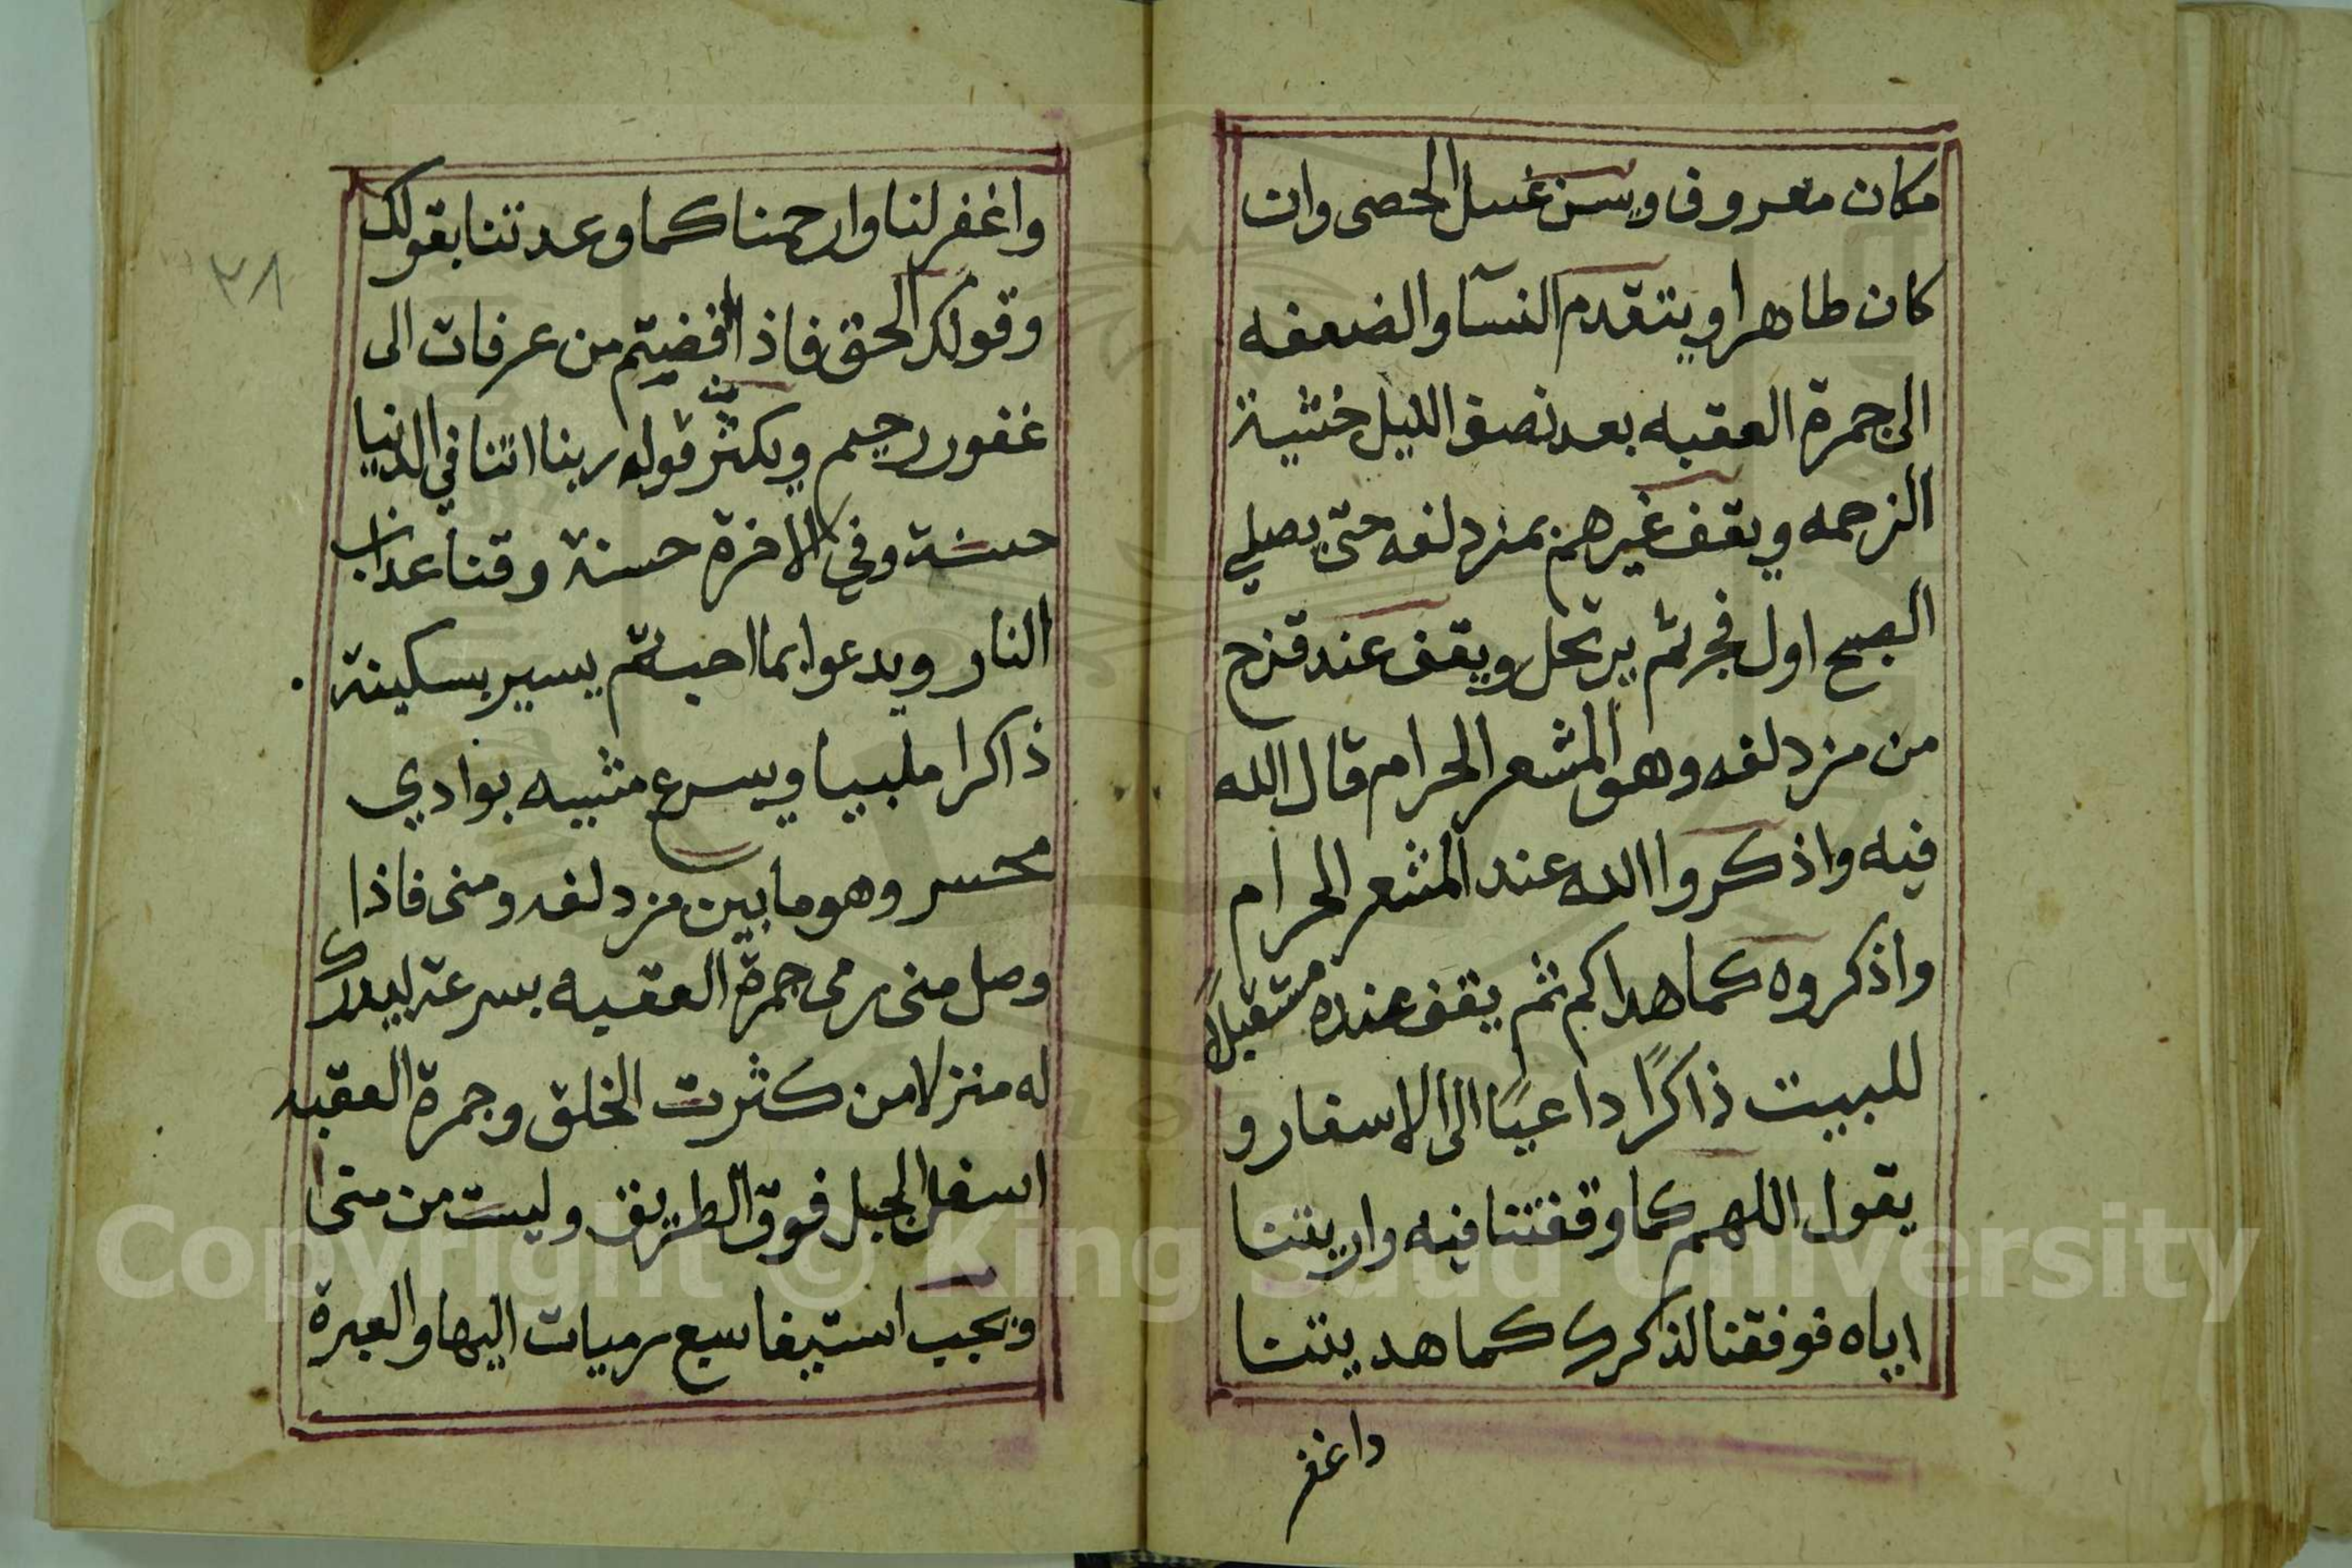 مكان معروف ويسن غسل الحصى وان
كان طاهرا ويتقدم النسآ والضعفه
الى جمرة العقبه بعد نصف الليل خشية
الزحمه ويقف غيرهم بمزدلفه حتى يصلي
الصبح اول فجر ثم يرتحل ويقف عند قزح
من مزدلفه وهو المشعر الحرام قال الله
فيه واذكروا الله عند المشعر الحرام
واذكروه كما هداكم ثم يقف عنده مستقبلاً
للبيت ذاكرًا داعيًا الى الاسفار و
يقول اللهم كما وقفتنا فيه واريتنا
اياه فوفقنا لذكرك كما هديتنا
واغفر
واغفر لنا وارحمنا كما وعدتنا بقولك
وقولك الحق فاذا افضيتم من عرفات الى
غفور رحيم ويكثر من قوله ربنا اتنا في الدنيا
حسنة وفي الاخرة حسنة وقنا عذاب
النار ويدعوا بما احب ثم يسير بسكينة
ذاكرا ملبيا ويسرع مشيه بوادي
محسر وهو ما بين مزدلفه ومنى فاذا
وصل منى رمى جمرة العقبه بسرعة ليدرك
له منزلا من كثرت الخلق وجمرة العقبه
اسفل الجبل فوق الطريق وليست من منى
ويجب استيفا سبع رميات اليها والعبرة
٣٨
Copyright © King Saud University
1957